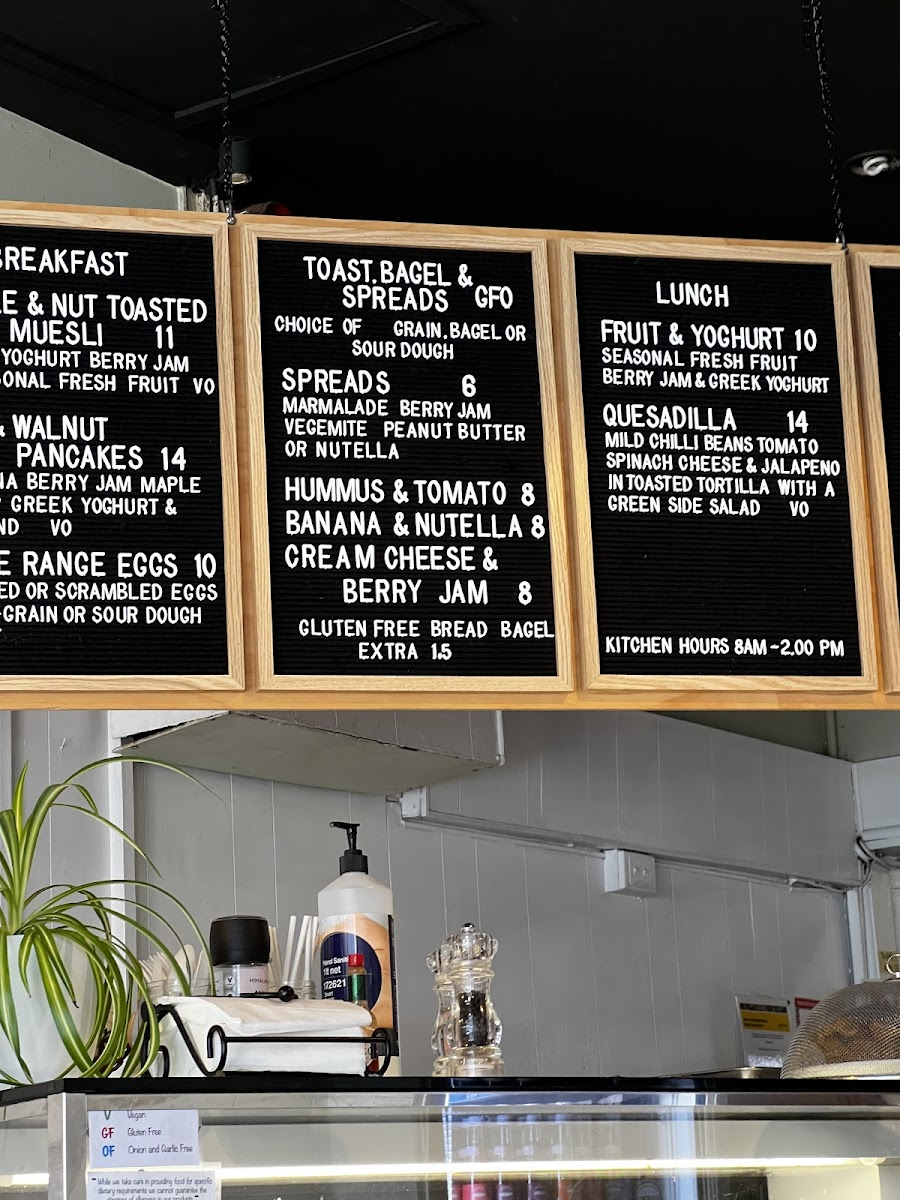 BREAKFAST
& NUT TOASTED
MUESLI 11
YOGHURT BERRY JAM
FRESH FRUIT VO
& WALNUT
PANCAKES 14
BERRY JAM MAPLE
GREEK YOGHURT &
VO
RANGE EGGS 10
OR SCRAMBLED EGGS
-GRAIN OR SOUR DOUGH
TOAST, BAGEL &
SPREADS GFO
CHOICE OF GRAIN, BAGEL OR
SOUR DOUGH
SPREADS 6
MARMALADE BERRY JAM
VEGEMITE PEANUT BUTTER
OR NUTELLA
HUMMUS & TOMATO 8
BANANA & NUTELLA 8
CREAM CHEESE &
BERRY JAM 8
GLUTEN FREE BREAD BAGEL
EXTRA 1.5
LUNCH
FRUIT & YOGHURT 10
SEASONAL FRESH FRUIT
BERRY JAM & GREEK YOGHURT
QUESADILLA 14
MILD CHILLI BEANS TOMATO
SPINACH CHEESE & JALAPENO
IN TOASTED TORTILLA WITH A
GREEN SIDE SALAD VO
KITCHEN HOURS 8AM -2.00 PM
Hand
1lt net
172621
V Vegan
GF Gluten Free
OF Onion and Garlic Free
While we take care in providing food for specific
dietary requirements we cannot guarantee the